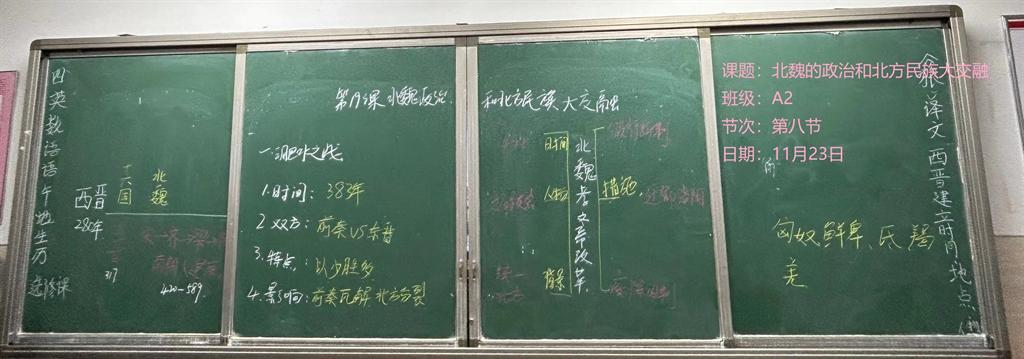 课题：北魏的政治和北方民族大交融
班级：A2
节次：第八节
日期：11月23日
第19课 北魏政治
和北方民族大交融
四英数语语午地生历
选修课
西晋
280年
十六国
北魏
317
420-589
一、淝水之战
1.时间：383年
2.双方：前秦VS东晋
3.特点：以少胜多
4.影响：前秦瓦解 北方分裂
时间
人物
背景
统一
北方
北魏孝文帝改革
措施
匈奴、鲜卑、氐、羯
羌
译文 西晋建立时间、地点